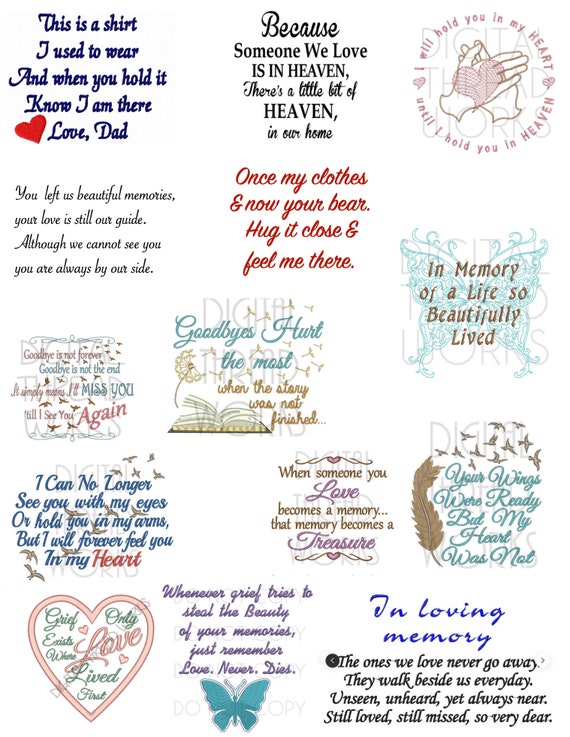 This is a shirt
I used to wear
And when you hold it
Know I am there
Love, Dad
Because
Someone We Love
IS IN HEAVEN,
There's a little bit of
HEAVEN,
in our home
I will hold you in my HEART
until I hold you in HEAVEN
DIGITAL
THREAD
WORKS
You left us beautiful memories,
your love is still our guide.
Although we cannot see you
you are always by our side.
Once my clothes
& now your bear.
Hug it close &
feel me there.
In Memory
of a Life so
Beautifully
Lived
DIGITAL
THREAD
WORKS
Goodbye is not forever
Goodbye is not the end
It simply means I'll MISS YOU
'till I See You Again
Goodbyes Hurt
the most
when the story
was not
finished...
DIGITAL
THREAD
WORKS
I Can No Longer
See you with my eyes
Or hold you in my arms,
But I will forever feel you
In my Heart
DIGITAL
THREAD
WORKS
When someone you
Love
becomes a memory...
that memory becomes a
Treasure
DIGITAL
THREAD
WORKS
Your Wings
Were Ready
But My
Heart
Was Not
DIGITAL
THREAD
WORKS
Grief Only
Exists
Where Love
Lived
First
Whenever grief tries to
steal the Beauty
of your memories,
just remember
Love. Never. Dies.
DO NOT COPY
In loving
memory
The ones we love never go away.
They walk beside us everyday.
Unseen, unheard, yet always near.
Still loved, still missed, so very dear.